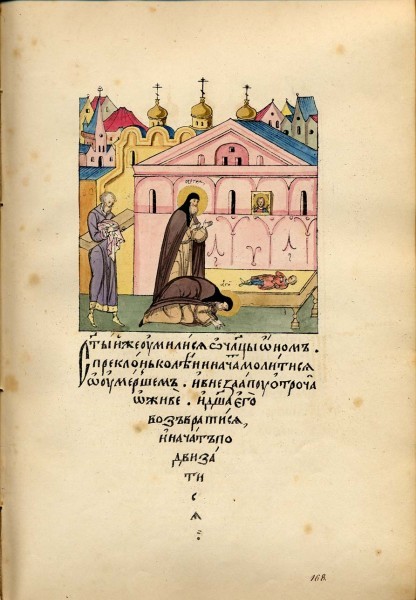 Ст҃ый же оумилисѧ ѡ ѻц҃ы ѻномъ.
И преклонь колѣни и нача молитисѧ
ѡ оумершемъ. и внезаапоу ѻтроча̀
ѡживе. и дш҃а его̀
возъвратисѧ,
и начатъ по
двиза́
ти
с
ѧ
168.